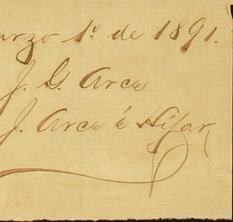 Marzo 1º de 1891.
J. G. Arce
J. Arce é Hijar